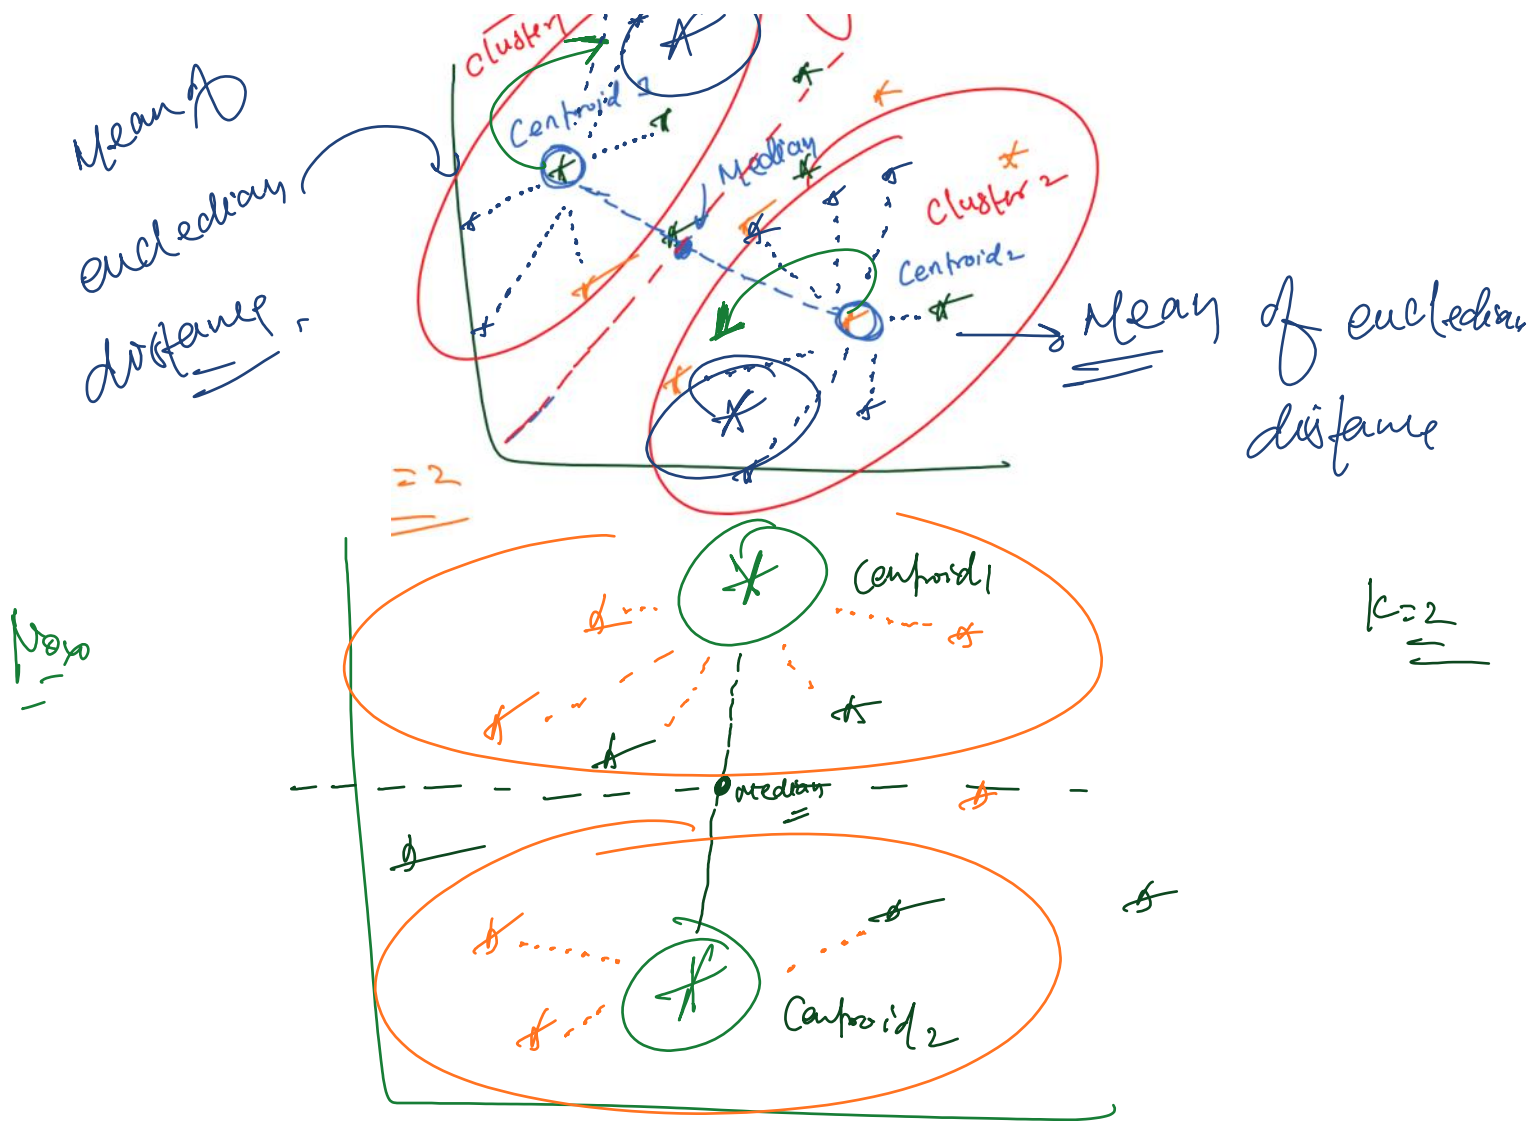 Cluster
Mean of
eucledian
distance.
Centroid
Median
Cluster 2
Centroid 2
Mean of eucledian
distance
= 2
Centroid 1
K = 2
Median
Centroid 2